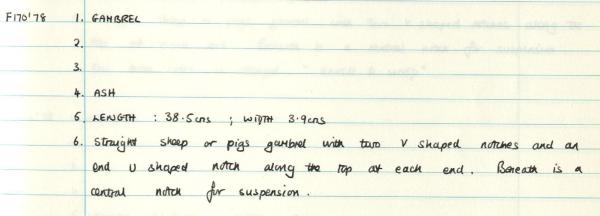 F170'78 1. GAMBREL
2.
3.
4. ASH
5. LENGTH : 38.5cms ; WIDTH 3.9cms
6. Straight sheep or pigs gambrel with two V shaped notches and an
end U shaped notch along the top at each end. Beneath is a
central notch for suspension.